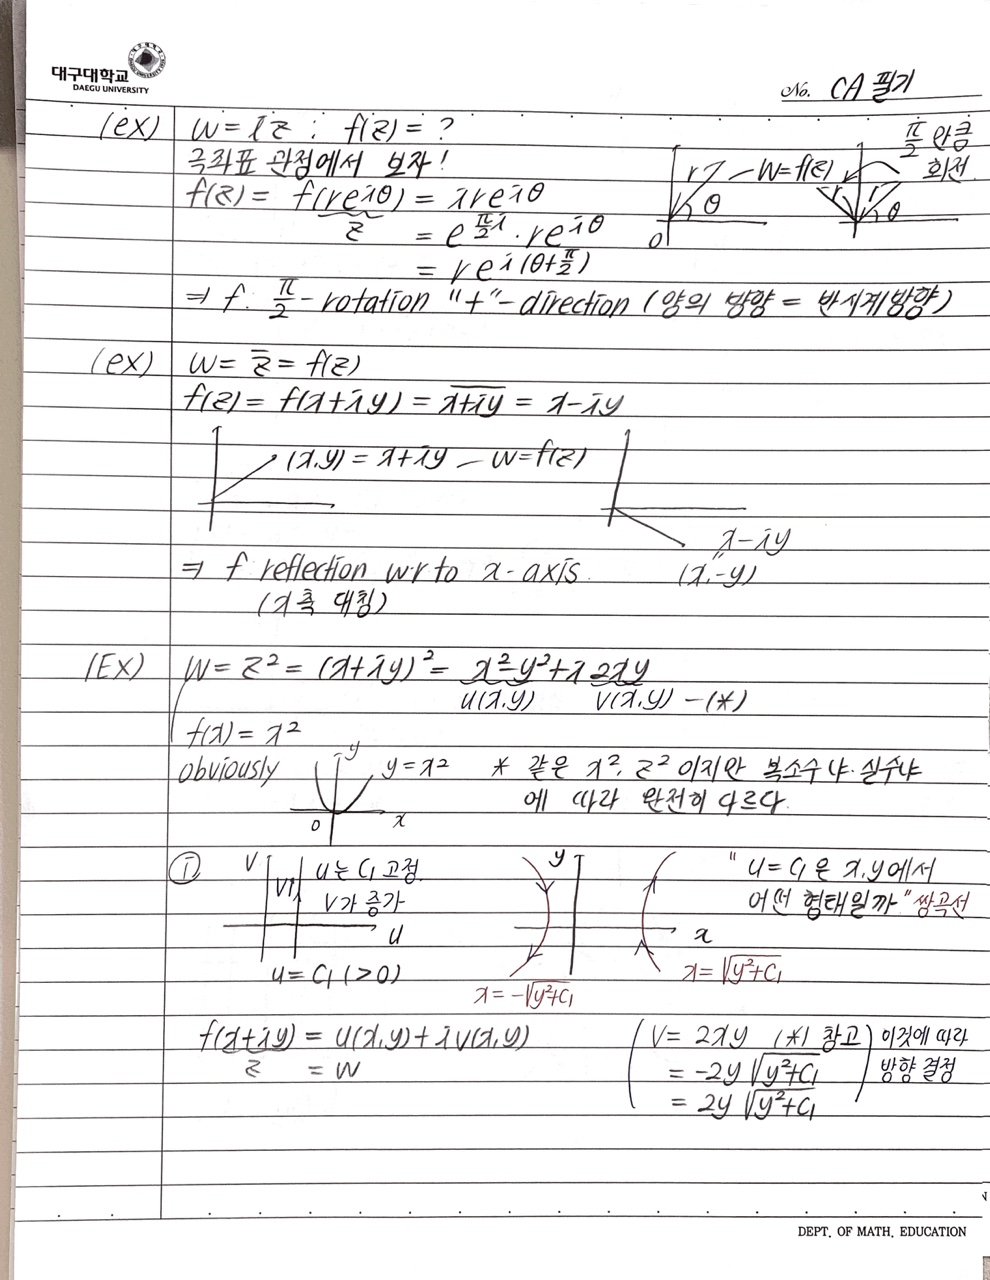 대구대학교
DAEGU UNIVERSITY
No. CA 필기
(ex) w = iz ; f(z) = ?
극좌표 관점에서 보자!
f(z) = f(re^{iθ}) = ire^{iθ}
z = e^{\frac{π}{2}i} · re^{iθ}
= re^{i(θ+\frac{π}{2})}
r θ 0 — w=f(z) r r θ
\frac{π}{2} 만큼
회전
⇒ f. \frac{π}{2}-rotation "+"-direction (양의 방향 = 반시계방향)
(ex) w = \overline{z} = f(z)
f(z) = f(x+iy) = \overline{x+iy} = x-iy
(x,y) = x+iy — w=f(z)
x-iy
"
(x,-y)
⇒ f reflection w.r to x-axis.
(x축 대칭)
(Ex) w = z² = (x+iy)² = x²-y²+i 2xy
u(x,y) v(x,y) -(*)
f(x) = x²
obviously y y=x² * 같은 x², z² 이지만 복소수냐·실수냐
0 x 에 따라 완전히 다르다.
① V V↑ u는 C₁ 고정. y "u=C₁은 x,y에서
V가 증가 어떤 형태일까" 쌍곡선
u x
u = C₁ (>0) x=-√(y²+C₁) x=√(y²+C₁)
f(x+iy) = u(x,y)+iv(x,y) (V = 2xy (*) 참고) 이것에 따라
z = w = -2y √(y²+C₁) 방향 결정
= 2y √(y²+C₁)
DEPT. OF MATH. EDUCATION